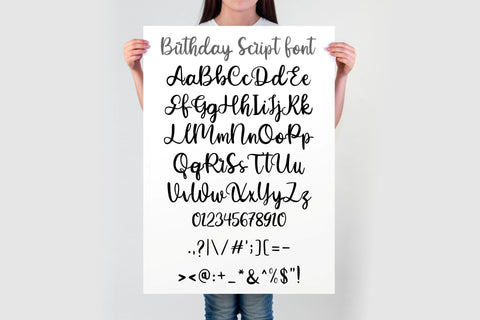 Birthday Script font
AaBbCcDdEe
FfGgHhIiJjKk
LlMmNnOoPp
QqRrSsTtUu
VvWwXxYyZz
012345678910
.,?|\/#';][=-
><@:+_*&^%$"!